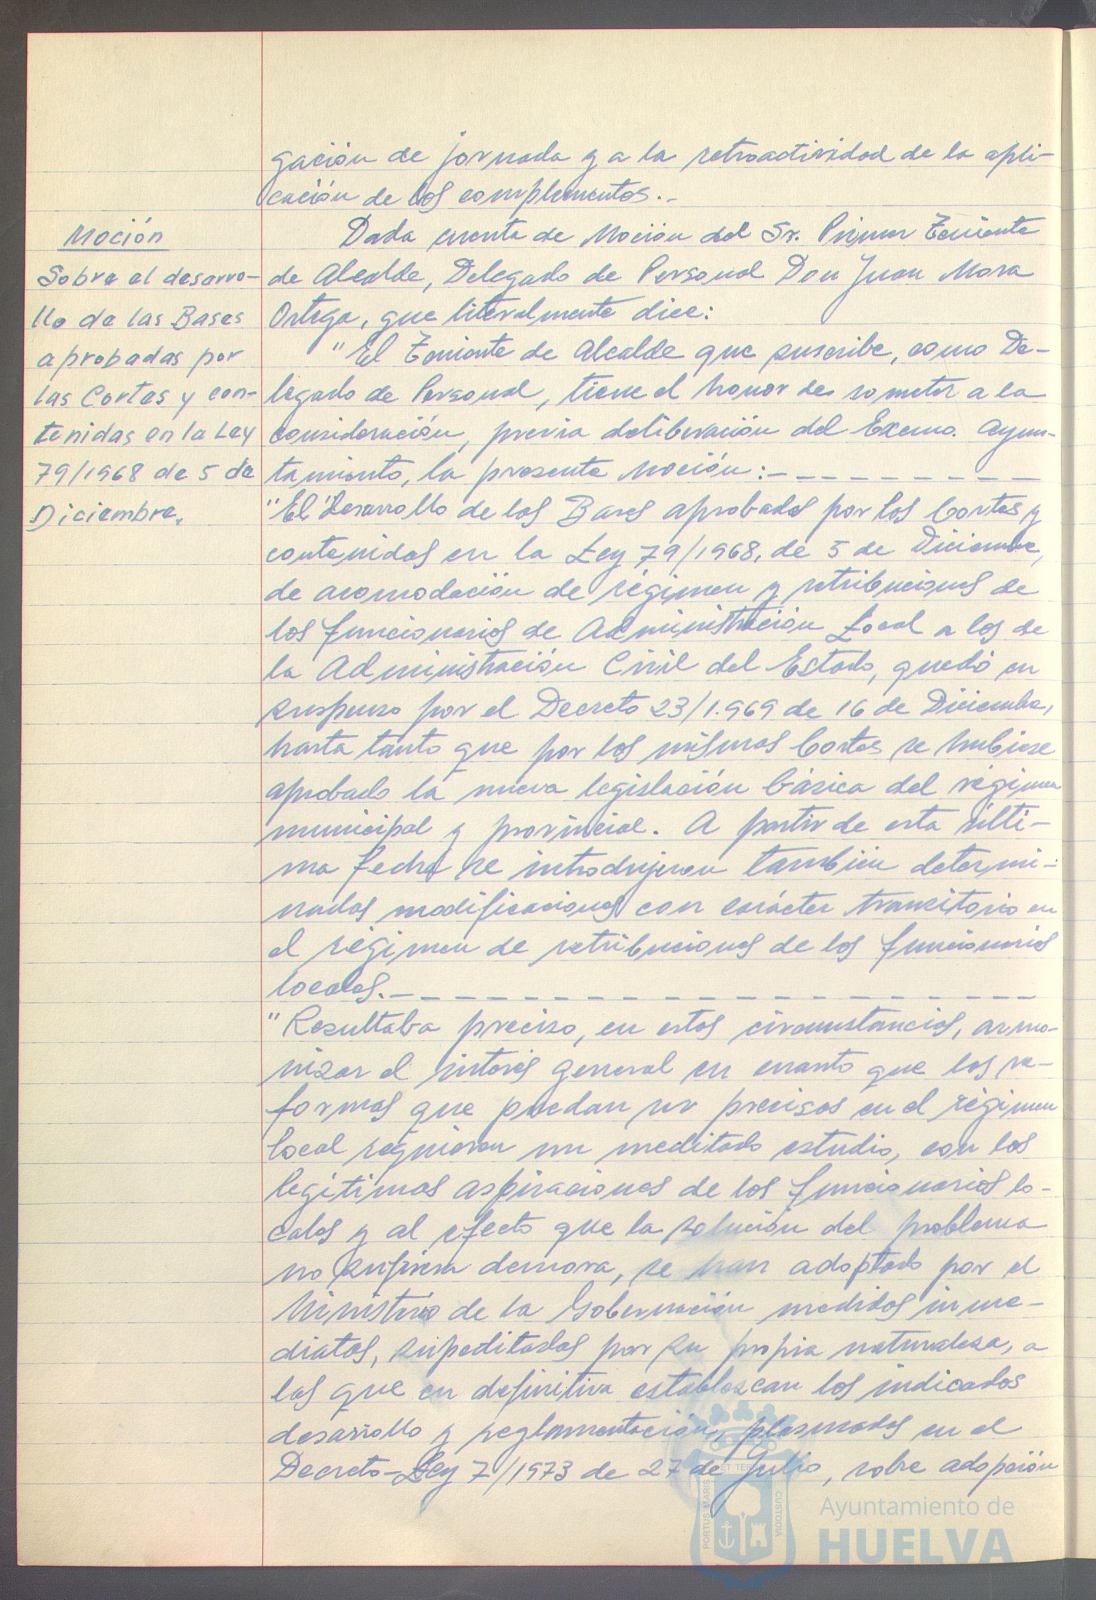 gación de jornada y a la retroactividad de la apli-
cación de los complementos.-
Moción
Sobre el desarro-
llo de las Bases
aprobadas por
las Cortes y con-
tenidas en la Ley
79/1968 de 5 de
Diciembre.
Dada cuenta de Moción del Sr. Primer Teniente
de Alcalde, Delegado de Personal Don Juan Mora
Ortega, que literalmente dice:
"El Teniente de Alcalde que suscribe, como De-
legado de Personal, tiene el honor de someter a la
consideración, previa deliberación del Excmo. Ayun-
tamiento, la presente Moción:-
"El Desarrollo de las Bases aprobadas por las Cortes y
contenidas en la Ley 79/1968, de 5 de Diciembre,
de acomodación de régimen y retribuciones de
los funcionarios de Administración Local a los de
la Administración Civil del Estado, quedó en
suspenso por el Decreto 23/1.969 de 16 de Diciembre,
hasta tanto que por las mismas Cortes se hubiese
aprobado la nueva legislación básica del régimen
municipal y provincial. A partir de esta últi-
ma fecha se introdujeron también determi-
nadas modificaciones con carácter transitorio en
el régimen de retribuciones de los funcionarios
locales.-
"Resultaba preciso, en estas circunstancias, armo-
nizar el interés general en cuanto que las re-
formas que puedan ser precisas en el régimen
local requieren un meditado estudio, con las
legítimas aspiraciones de los funcionarios lo-
cales y al efecto que la solución del problema
no sufriera demora, se han adoptado por el
Ministerio de la Gobernación medidas inme-
diatas, supeditadas por su propia naturaleza, a
las que en definitiva establezcan los indicados
desarrollo y reglamentación, plasmadas en el
Decreto-Ley 7/1973 de 27 de Julio, sobre adopción
PORTUS MARIS ET TERRAE CUSTODIA
Ayuntamiento de
HUELVA